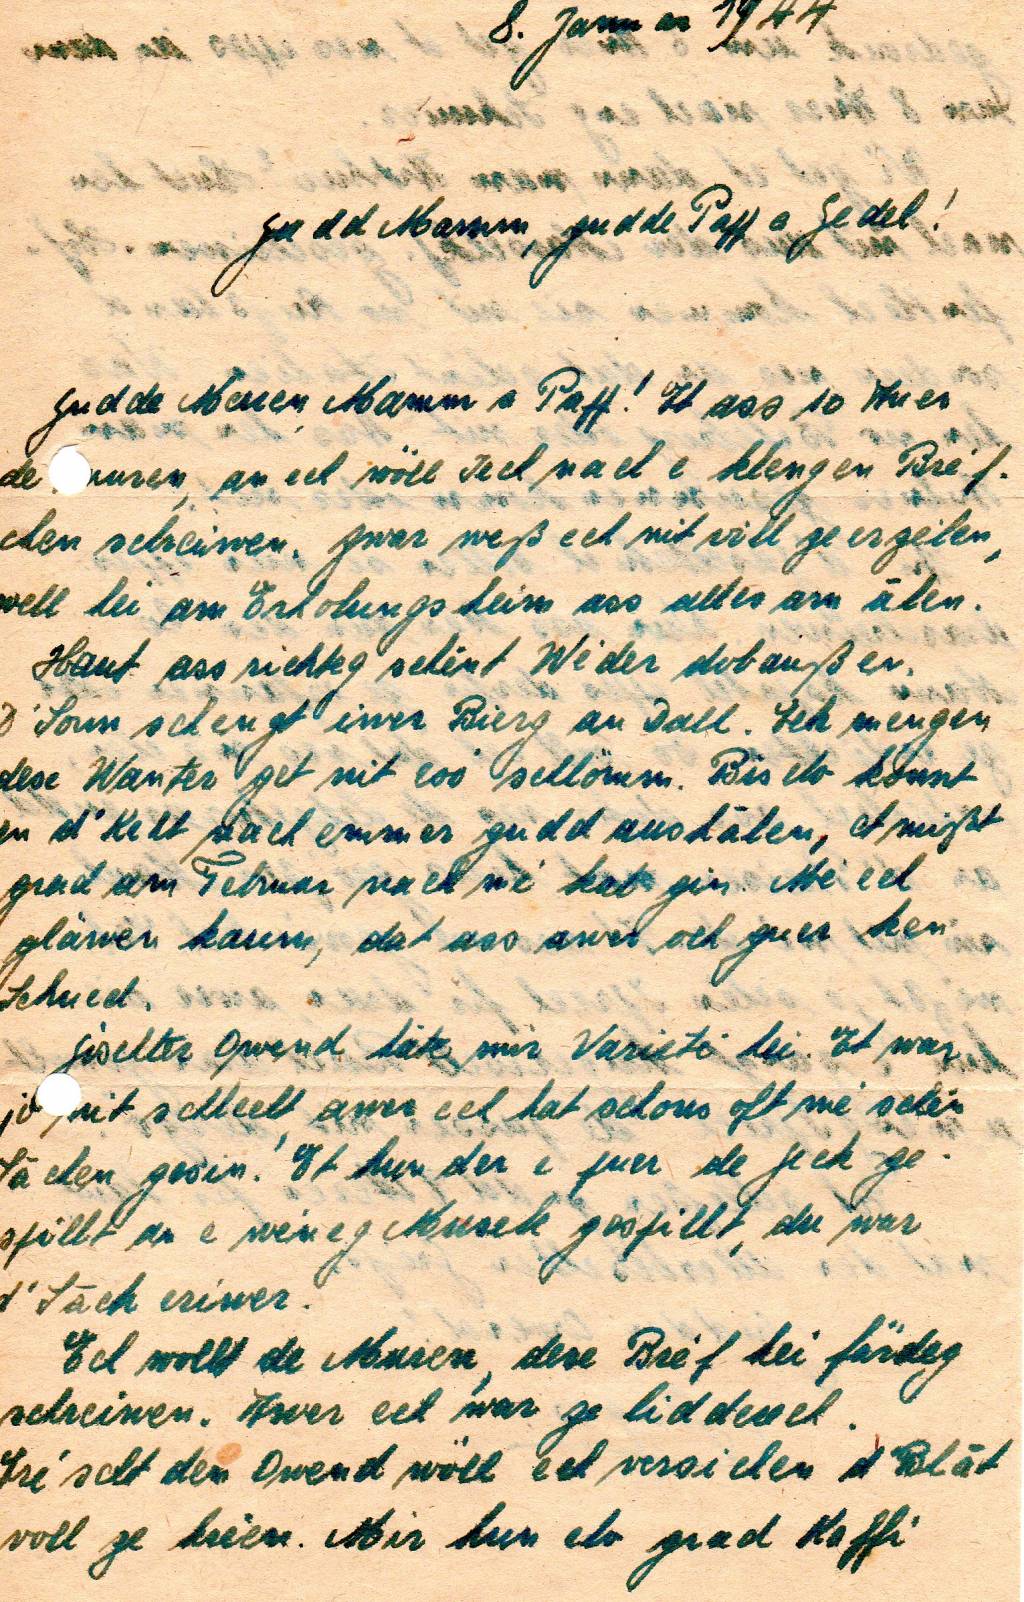 8. Januar 1944
Gudd Mamm, gudde Paff a Jedel!
Gudde Muen, Mamm a Paff! Et ass 10 Auer
de Muren, an ech wöll Iech nach e klengen Bréf-
chen schreiwen. Zwar weß ech nit vill ze erzielen,
well hei am Erholungsheim ass alles am ālen.
Haut ass richteg schént Wéder dobaußen.
D'Sonn schengt iwer Bierg an Dall. Ech mengen
dese Wanter get nit esó schlömm. Bis elo konnt
en d'Kelt nach emmer gudd aushālen, et mißt
grad am Februar nach mé kal gin. Mé ech
gläwen kaum, dat ass awer och guer ken
Schned.
Gischter Owend häte mir Varieté hei. Et war
jo nit schlecht, awer ech hat schons oft mé schén
Sāchen gesin! Et hun der e puer de Jeck ge-
spillt an e wéneg Musek gespillt, du war
d'Sāch eriwer.
Ech wollt de Muren, dese Bréf hei färdeg
schreiwen. Awer ech war ze lidderech.
Iré'scht den Owend wöll ech versichen d'Blāt
voll ze kréen. Mir hun elo grad Kaffi